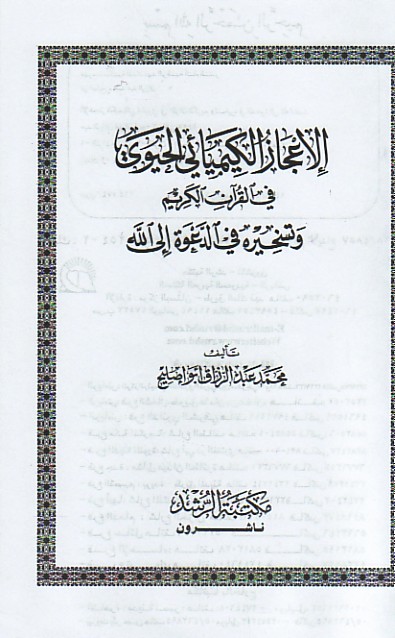 الإعجاز الكيميائي الحيوي
في القرآن الكريم
وتسخيره في الدعوة إلى الله
تأليف
محمد عبد الرزاق أبو اصليح
مكتبة الرشد
ناشرون